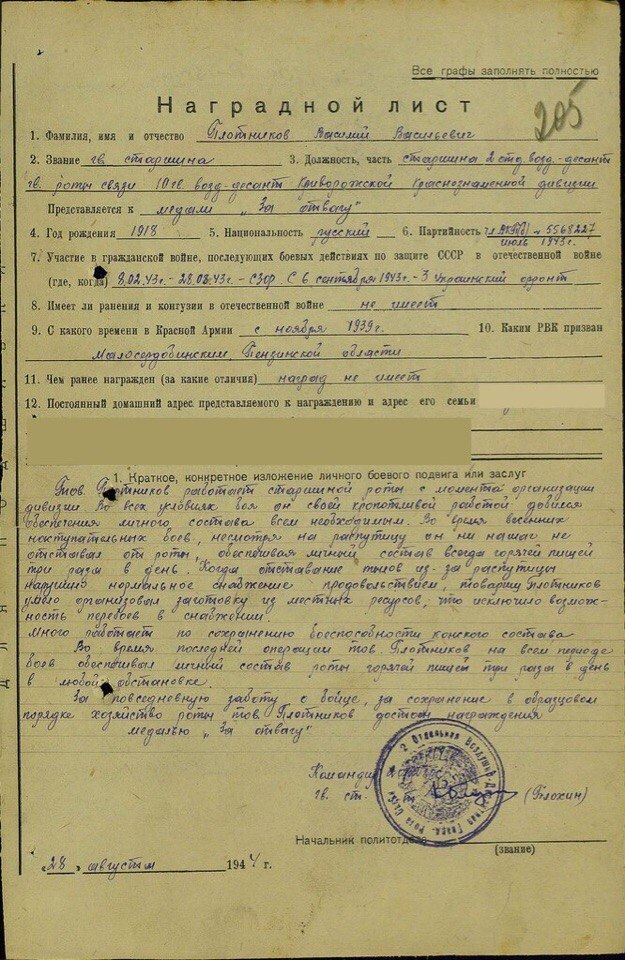 Все графы заполнять полностью
205
Наградной лист
1. Фамилия, имя и отчество Плотников Василий Васильевич
2. Звание гв. старшина 3. Должность, часть старшина 2 отд. возд.-десант
гв. роты связи 10 гв. возд-десант Криворожской Краснознаменной дивизии
Представляется к медали „За отвагу"
4. Год рождения 1918 5. Национальность русский 6. Партийность ВКП(б) - 5568227
июль 1943г.
7. Участие в гражданской войне, последующих боевых действиях по защите СССР в отечественной войне
(где, когда) 8.02.43г. - 28.08.43г. - СЗФР. С 6 сентября 1943г. - 3 Украинский фронт
8. Имеет ли ранения и контузии в отечественной войне не имеет
9. С какого времени в Красной Армии с ноября 1939г. 10. Каким РВК призван
Малосердобинским, Пензинской области
11. Чем ранее награжден (за какие отличия) наград не имеет
12. Постоянный домашний адрес представляемого к награждению и адрес его семьи
1. Краткое, конкретное изложение личного боевого подвига или заслуг
Тов. Плотников работает старшиной роты с момента организации
дивизии. Во всех условиях боя он своей кропотливой работой добился
обеспечения личного состава всем необходимым. Во время весенних
наступательных боев, несмотря на распутицу он ни на шаг не
отставал от роты, обеспечивая личный состав всегда горячей пищей
три раза в день. Когда отставание тылов из-за распутицы
нарушило нормальное снабжение продовольствием, товарищ Плотников
умело организовал заготовку из местных ресурсов, что исключило возмож-
ность перебоев в снабжении.
Много работает по сохранению боеспособности конского состава
Во время последней операции тов. Плотников на всем периоде
боев обеспечивал личный состав роты горячей пищей три раза в день
в любой обстановке.
За повседневную заботу о бойце, за сохранение в образцовом
порядке хозяйство роты тов. Плотников достоин награждения
медалью „За отвагу"
Командир
гв. ст. (Блохин)
Начальник политотдела
(звание)
„28" августа 1944 г.